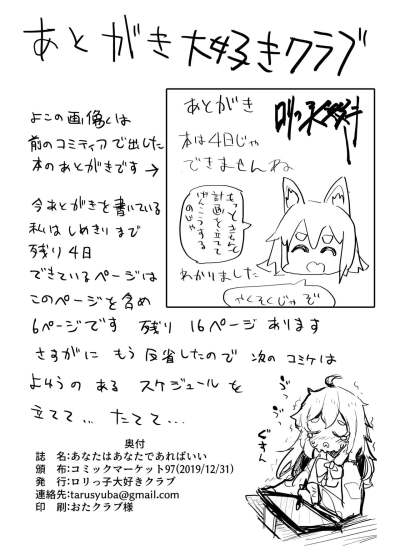 あとがき大好きクラブ
よこの画像くは
前のコミティアで出した
本のあとがきです→
あとがき
本は4日じゃ
できませんね
もっときちんと
計画を立てて
げんこうする
のじゃ
わかりました
やくそくじゃぞ
今あとがきを書いている
私はしめきりまで
残り4日
できているページは
このページを含め
6ページです 残り16ページあります
さすがにもう反省したので次のコミケは
よゆうのあるスケジュールを
立てて…たてて…
ぶつ
ぶつ
ぐすん
奥付
誌 名:あなたはあなたであればいい
頒 布:コミックマーケット97(2019/12/31)
発 行:ロリっ子大好きクラブ
連絡先:tarusyuba@gmail.com
印 刷:おたクラブ様